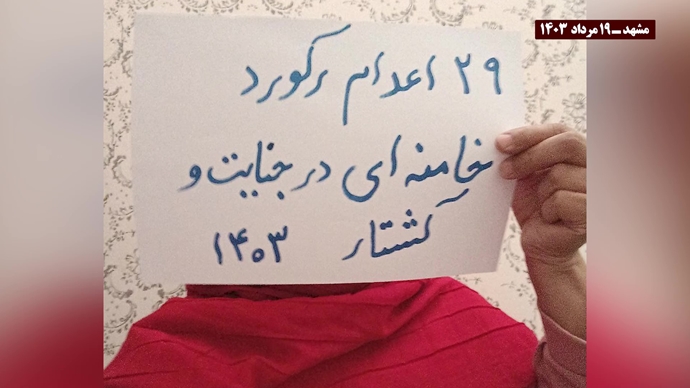 مشهد ــ ۱۹ مرداد ۱۴۰۳
۲۹ اعدام رکورد
خامنه ای در جنایت و
کشتار ۱۴۰۳